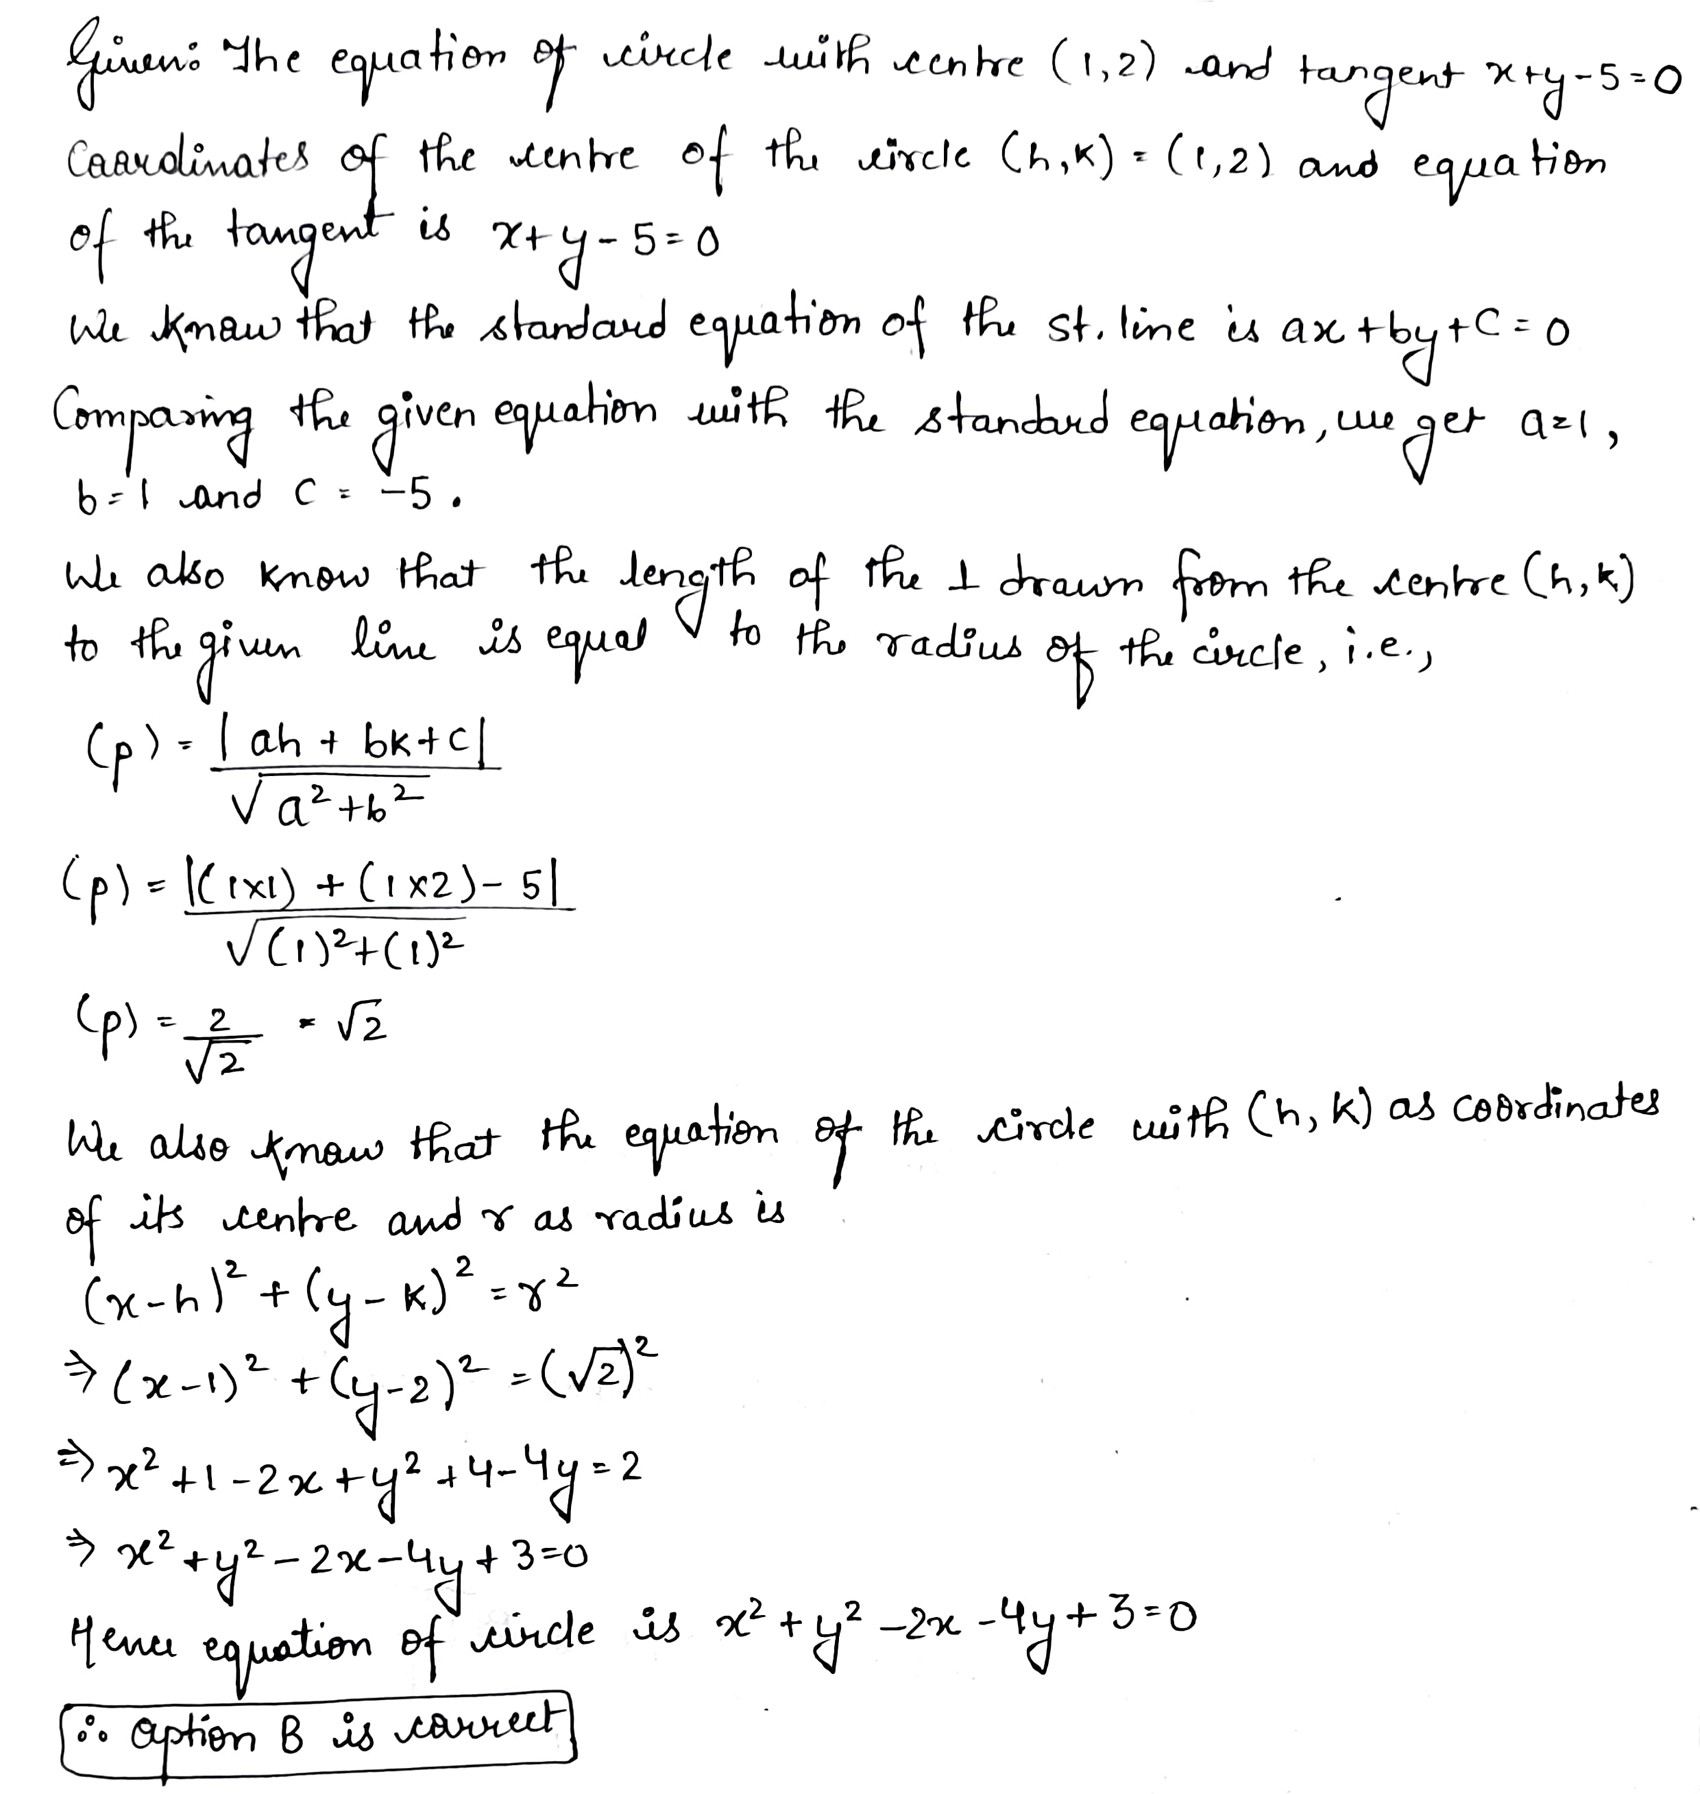 Given: The equation of circle with centre (1,2) and tangent x+y-5=0
Coordinates of the centre of the circle (h,k) = (1,2) and equation
of the tangent is x+y-5=0
We know that the standard equation of the st. line is ax+by+c=0
Comparing the given equation with the standard equation, we get a=1,
b=1 and c = -5.
We also know that the length of the ⊥ drawn from the centre (h,k)
to the given line is equal to the radius of the circle, i.e.,
(p) = |ah + bk+c|
√a²+b²
(p) = |(1×1) + (1×2)-5|
√(1)²+(1)²
(p) = 2/√2 = √2
We also know that the equation of the circle with (h,k) as coordinates
of its centre and r as radius is
(x-h)² + (y-k)² = r²
⇒ (x-1)² + (y-2)² = (√2)²
⇒ x²+1-2x+y²+4-4y=2
⇒ x²+y²-2x-4y+3=0
Hence equation of circle is x²+y²-2x-4y+3=0
∴ option B is correct